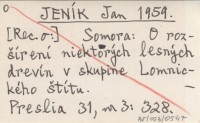 JENÍK Jan 1959.
[Rec. o:] Somora: O roz-
šírení niektorých lesných
drevín v skupine Lomnic-
kého štítu.
Preslia 31, n 3: 328.